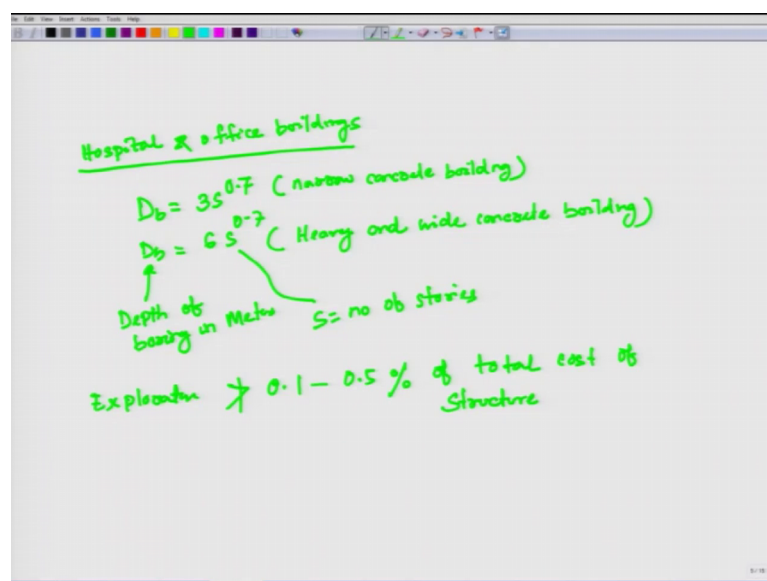 File Edit View Insert Actions Tools Help
Hospital & office buildings
D_b = 3S^0.7 (narrow concrete building)
D_b = 6 S^0.7 (Heavy and wide concrete building)
Depth of
boring in Meter
S = no of stories
Exploration ≯ 0.1 – 0.5 % of total cost of
Structure